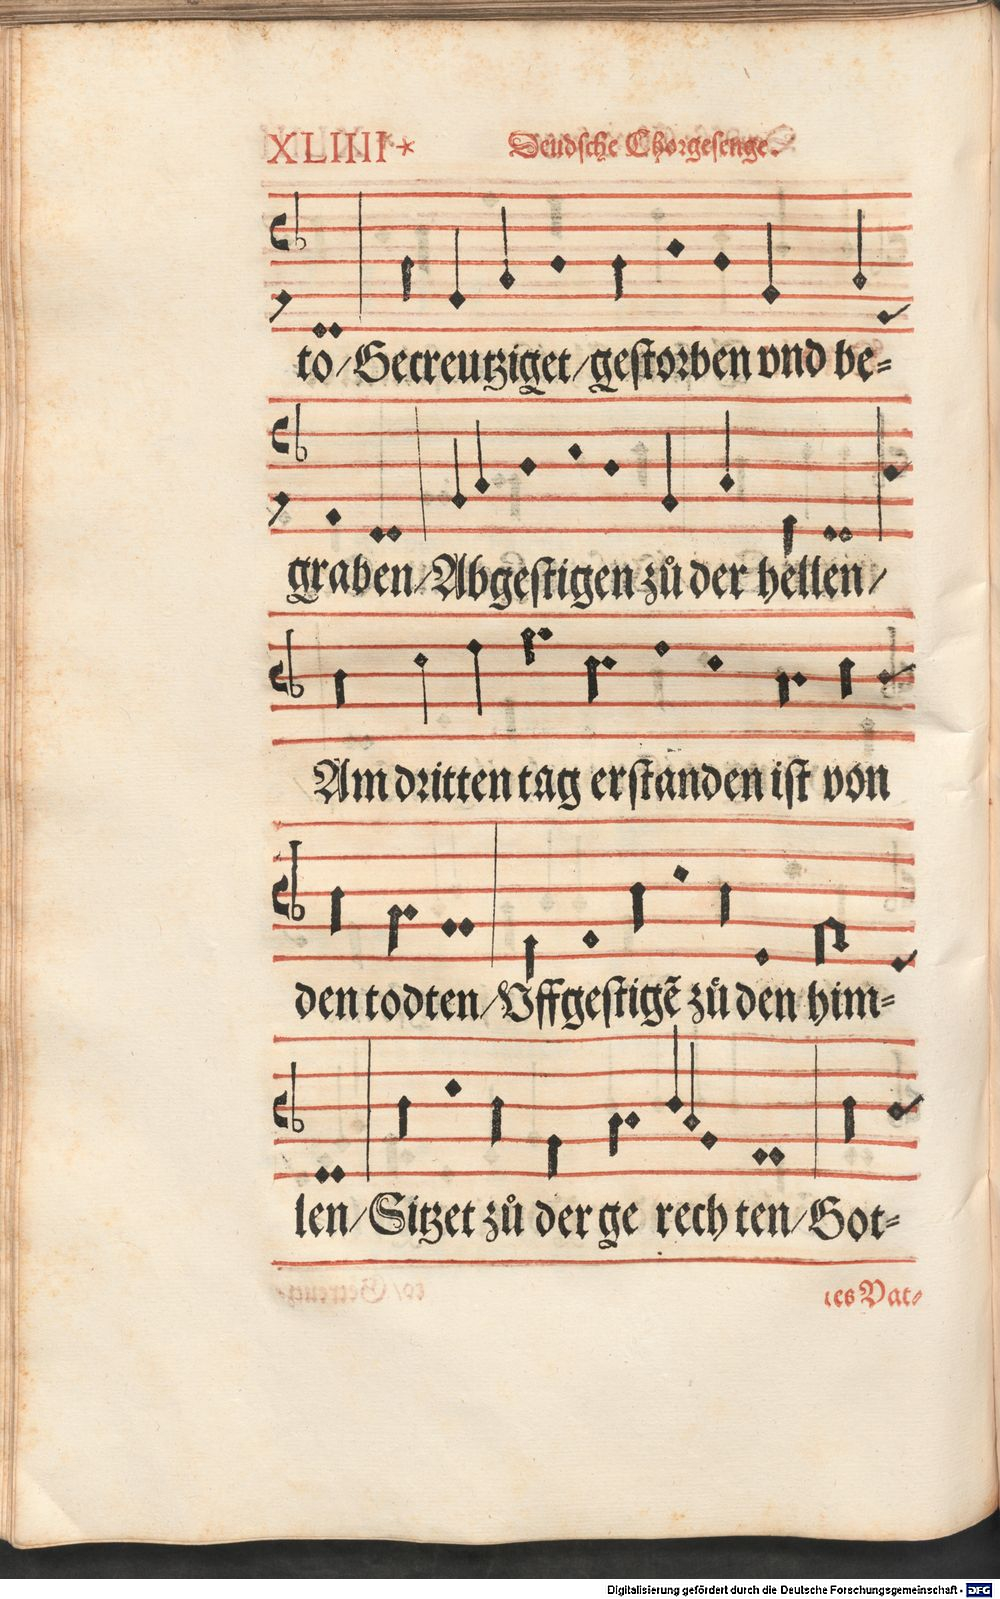 XLIIII*
Deudsche Chorgesenge.
to/Gecreutziget/gestorben vnd be⸗
graben/Abgestigen zů der hellen/
Am dritten tag erstanden ist von
den todten/Vffgestigẽ zů den him⸗
len/Sitzet zů der ge rech ten/Got⸗
tes Vat⸗
Digitalisierung gefördert durch die Deutsche Forschungsgemeinschaft - DFG